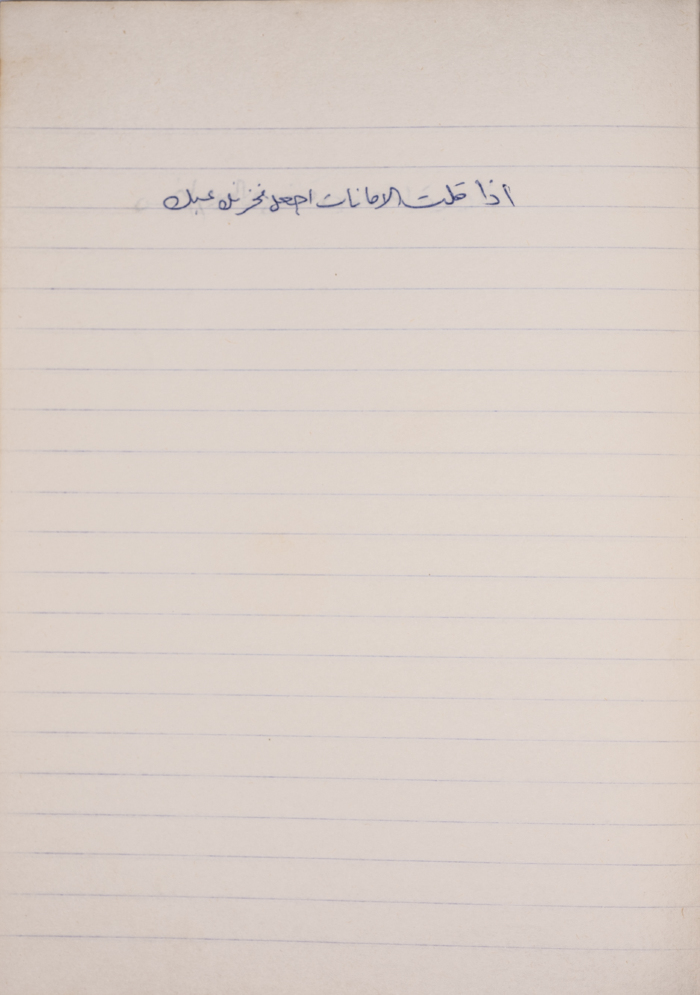 أذا قلت الامانات اجعل مخزنك عبك